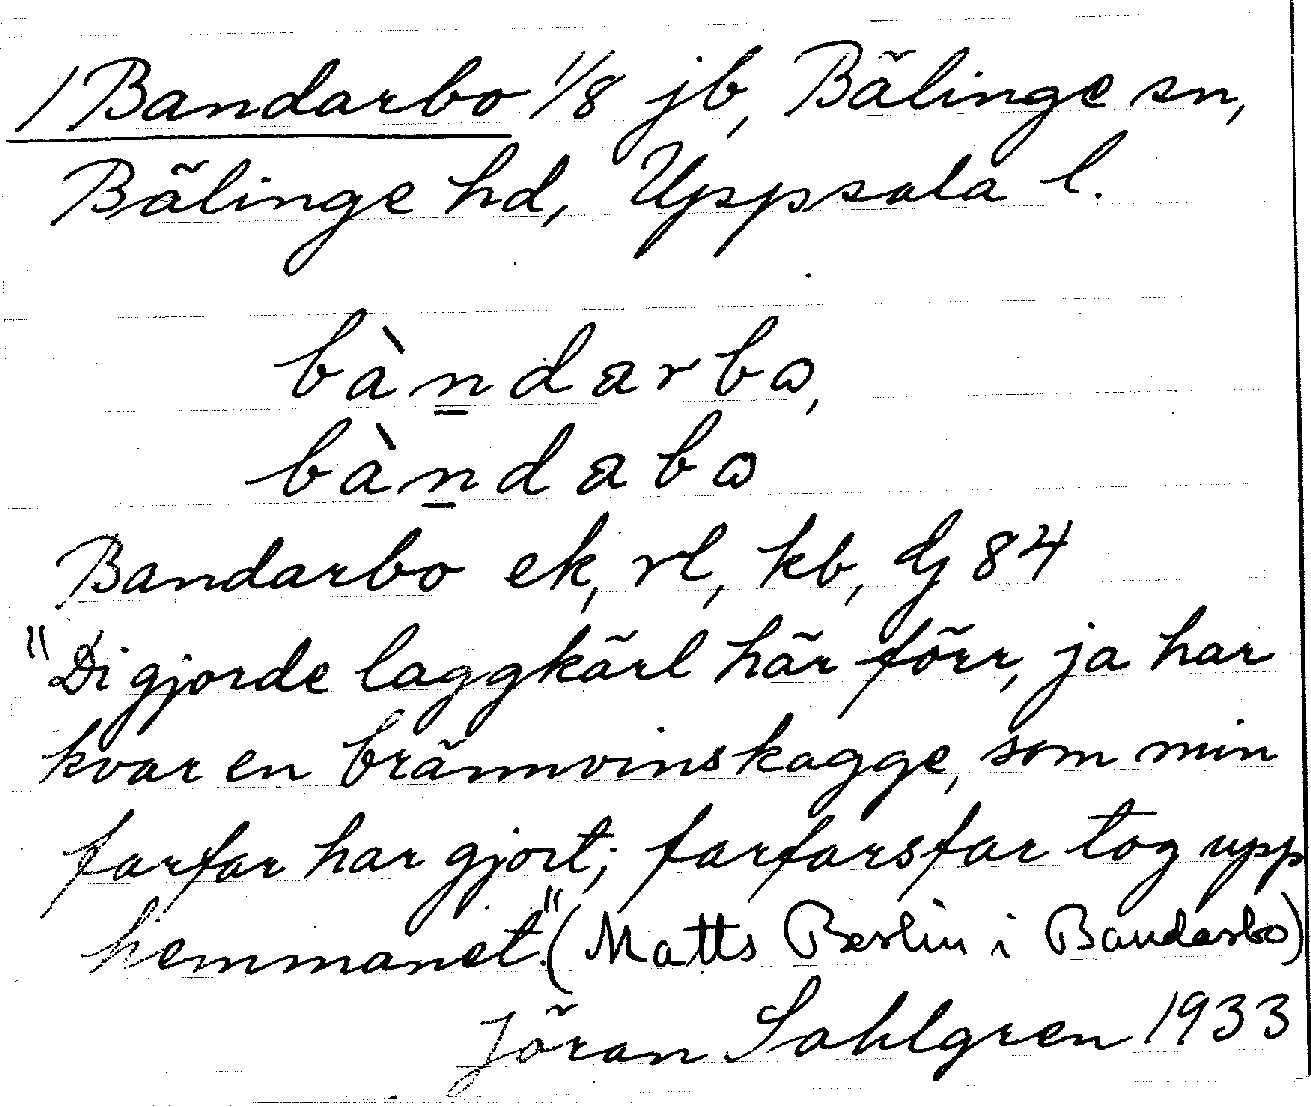 / Bandarbo 1/8 jb, Bälinge sn,
Bälinge hd, Uppsala l.
bàndarbɷ,
bàndabɷ
Bandarbo ek, rl, kb, dj 84
"Di gjorde laggkärl här förr, ja har
kvar en brännvinskagge, som min
farfar har gjort; farfarsfar tog upp
hemmanet". (Matts Berlin i Bandarbo)
Jöran Sahlgren 1933